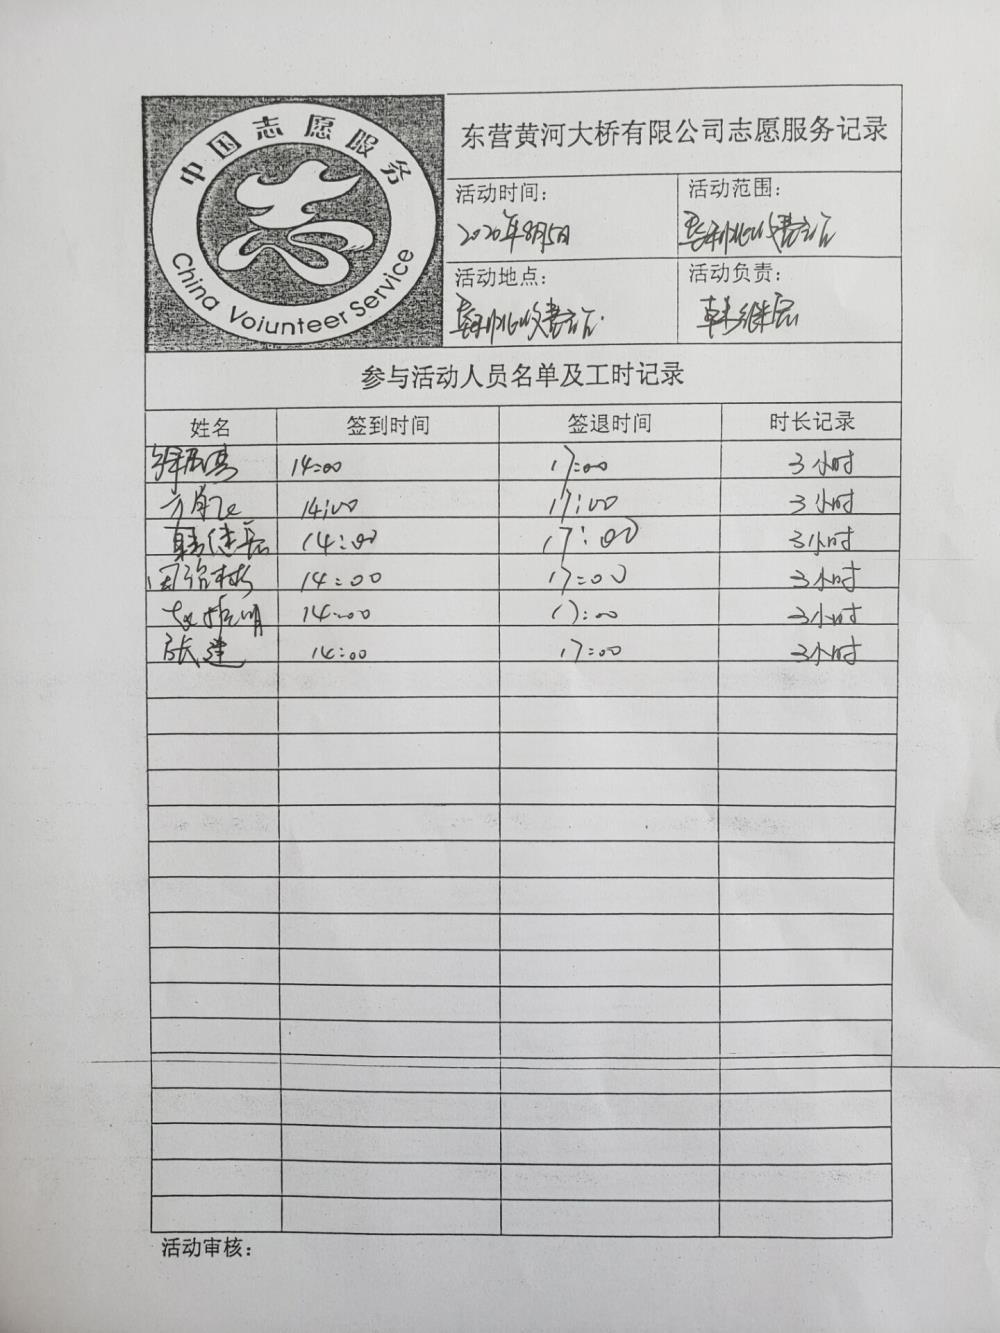 中国志愿服务
China Voiunteer Service
东营黄河大桥有限公司志愿服务记录
活动时间:
活动范围:
2020年8月5日
垦利北收费站
活动地点:
活动负责:
垦利北收费站.
韩继辰
参与活动人员名单及工时记录
姓名 签到时间 签退时间 时长记录
14:00 17:00 3小时
14:00 17:00 3小时
14:00 17:00 3小时
14:00 17:00 3小时
14:00 17:00 3小时
张建 14:00 17:00 3小时
活动审核: